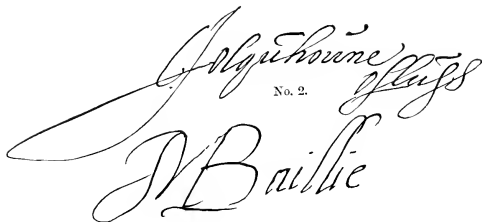 Colquhoune
of luss
No. 2.
W Baillie